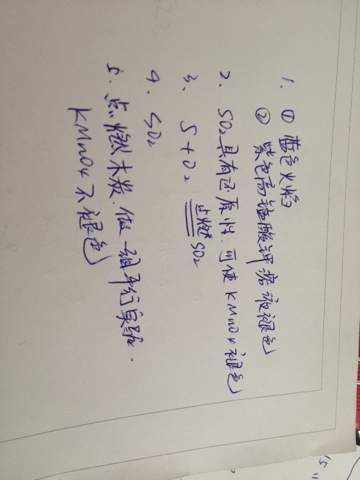 1. ① 蓝色火焰
② 紫色高锰酸钾溶液褪色
2. SO₂具有还原性.可使KMnO₄褪色
3. S + O₂ 点燃 SO₂
4. SO₂
5. 点燃木炭.做一组平行实验.
KMnO₄不褪色